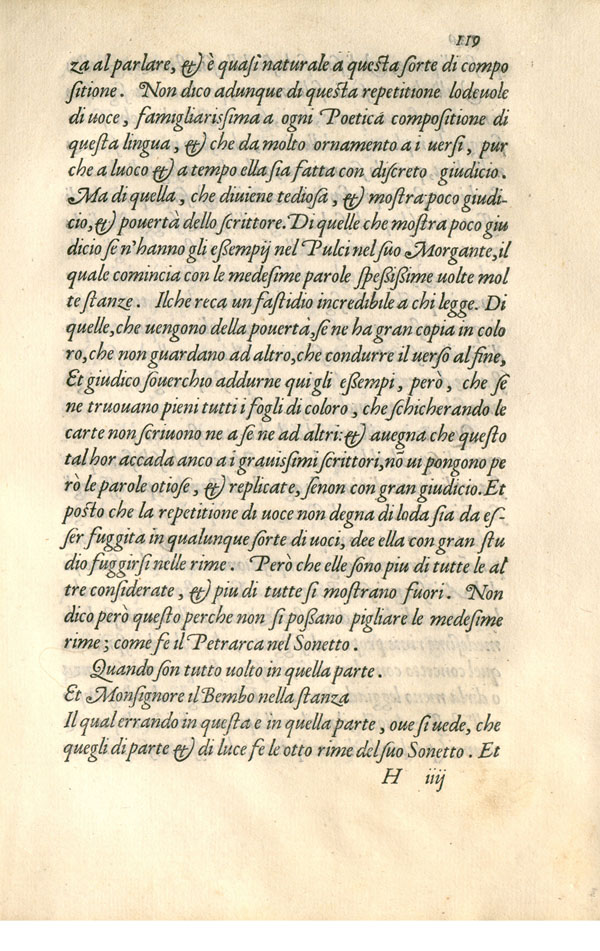 119
za al parlare, & è quasi naturale a questa sorte di compo
sitione. Non dico adunque di questa repetitione lodeuole
di uoce, famigliarissima a ogni Poetica compositione di
questa lingua, & che da molto ornamento a i uersi, pur
che a luoco & a tempo ella sia fatta con discreto giudicio.
Ma di quella, che diuiene tediosa, & mostra poco giudi-
cio, & pouertà dello scrittore. Di quelle che mostra poco giu
dicio se n'hanno gli essempij nel Pulci nel suo Morgante, il
quale comincia con le medesime parole spessissime uolte mol
te stanze. Ilche reca un fastidio incredibile a chi legge. Di
quelle, che uengono della pouertà, se ne ha gran copia in colo
ro, che non guardano ad altro, che condurre il uerso al fine,
Et giudico souerchio addurne qui gli essempi, però, che se
ne truouano pieni tutti i fogli di coloro, che schicherando le
carte non scriuono ne a se ne ad altri: & auegna che questo
tal hor accada anco a i grauissimi scrittori, nō ui pongono pe
rò le parole otiose, & replicate, senon con gran giudicio. Et
posto che la repetitione di uoce non degna di loda sia da es-
ser fuggita in qualunque sorte di uoci, dee ella con gran stu
dio fuggirsi nelle rime. Però che elle sono piu di tutte le al
tre considerate, & piu di tutte si mostrano fuori. Non
dico però questo perche non si possano pigliare le medesime
rime; come fe il Petrarca nel Sonetto.
Quando son tutto uolto in quella parte.
Et Monsignore il Bembo nella stanza
Il qual errando in questa e in quella parte, oue si uede, che
quegli di parte & di luce fe le otto rime del suo Sonetto. Et
H iiij